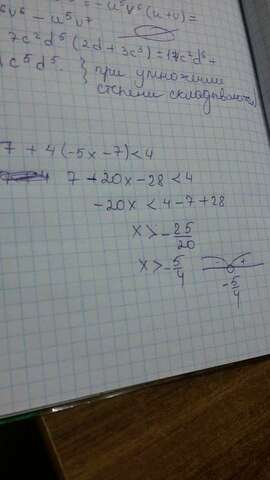 = -u⁵v⁶(u+v) =
u⁶v⁶ - u⁵v⁷
7c²d⁵(2d + 3c³) = 14c²d⁶ +
c⁵d⁵. } при умножении
степени складываются
7 + 4(-5x - 7) < 4
7 - 20x - 28 < 4
-20x < 4 - 7 + 28
x > -25/20
x > -5/4
-5/4